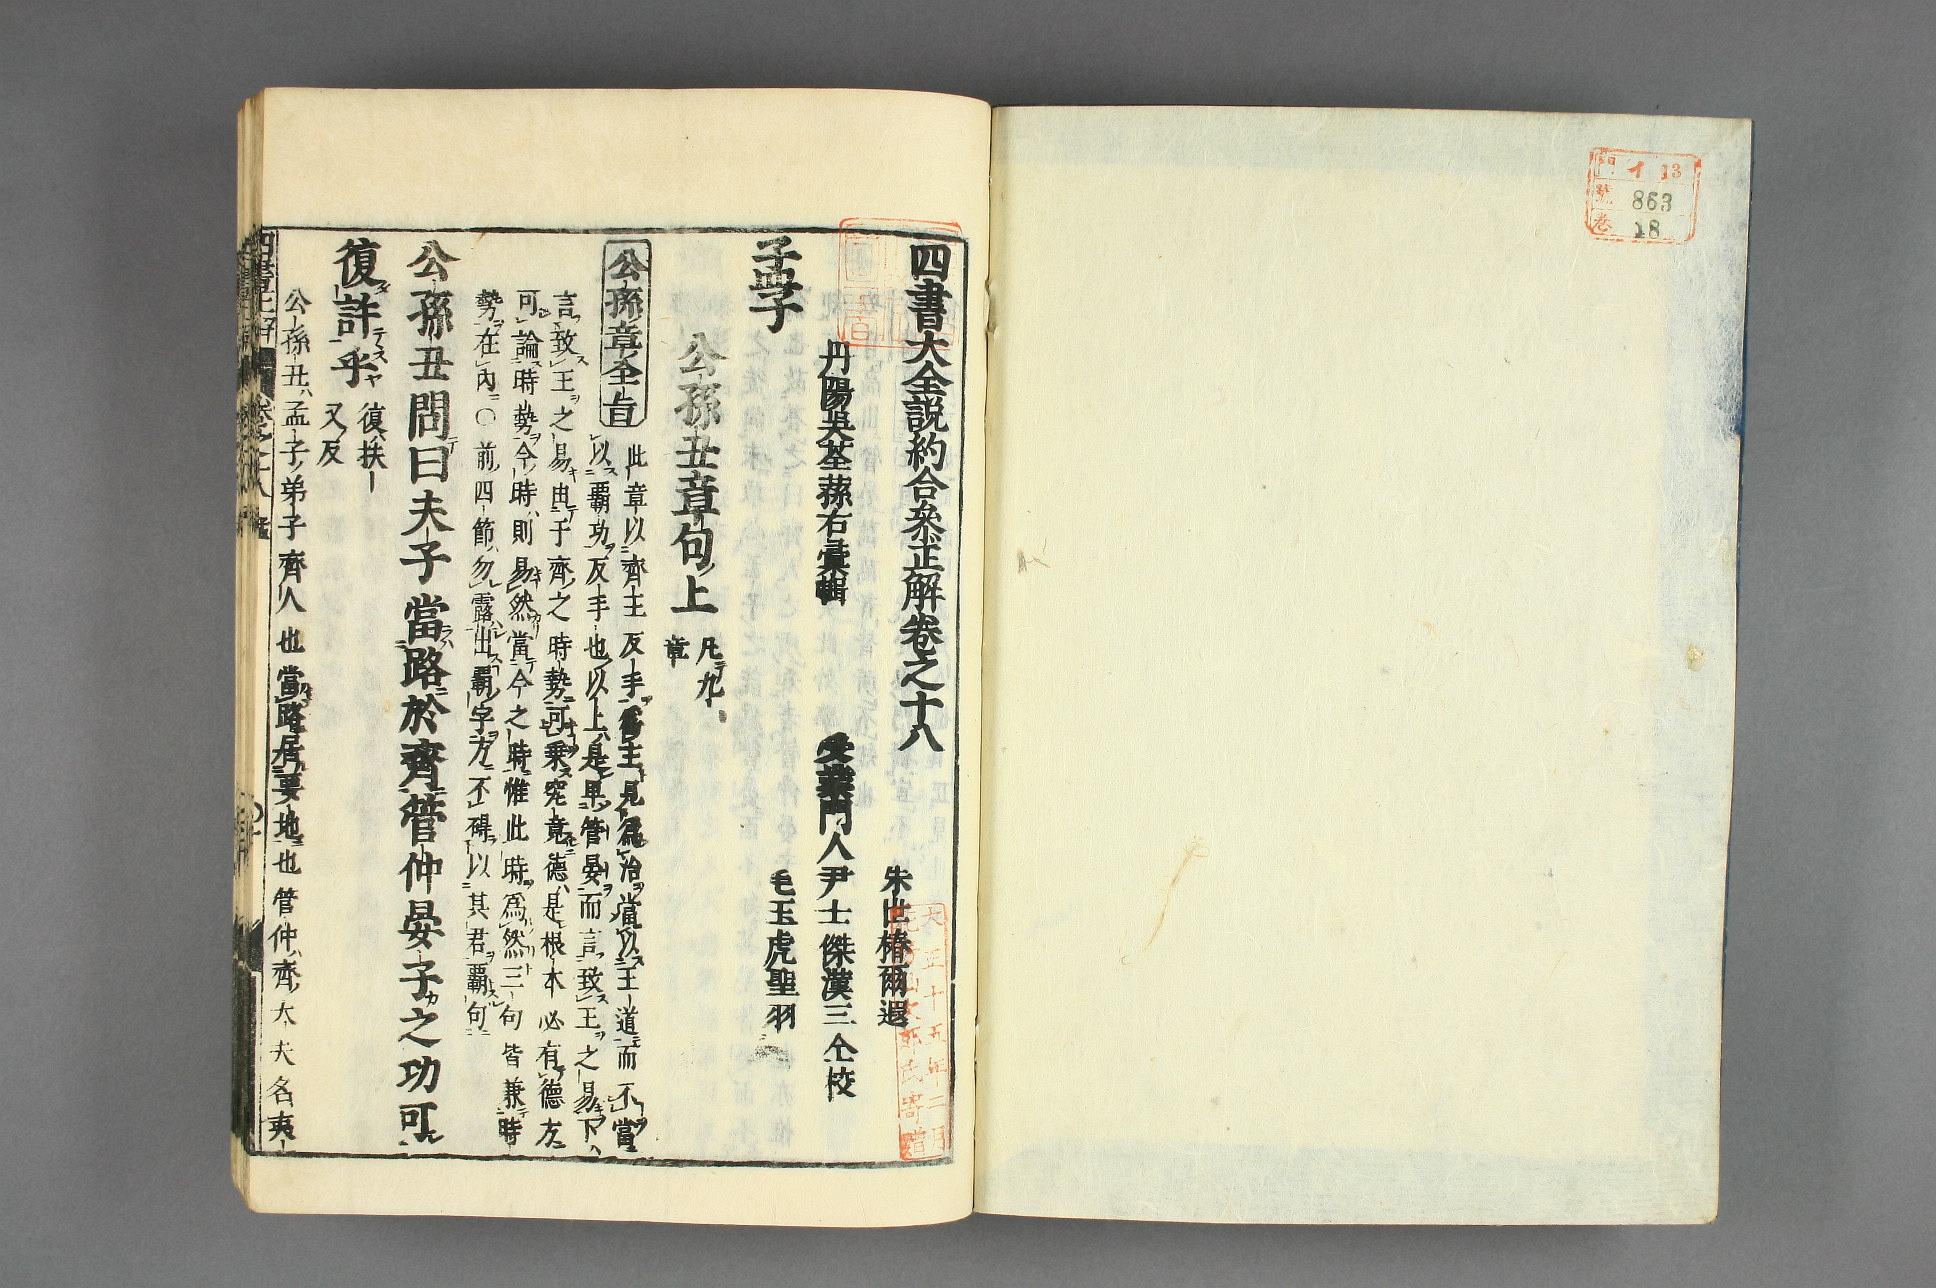 門 イ 13
號 863
卷 18
四書大全説約合参正解卷之十八
朱世椿爾遐
丹陽吳荃蓀右彙輯
受業門人尹士傑漢三仝校
孟子
毛玉虎聖羽
公孫丑章句上 凡九
章
公孫章全旨
此章以齊王反手爲主見爲治當以王道而不當
以覇功反手也以上是卑管晏而言致王之易下
言致王之易由于齊之時勢可乗究竟德是根本必有德方
可論時勢今時則易然當今之時惟此時爲然三句皆兼時
勢在内〇前四節勿露出覇字方不碍以其君覇句
公孫丑問曰夫子當路於齊管仲晏子之功可
復許乎 復扶
又反
公孫丑孟子弟子齊人也當路居要地也管仲齊大夫名夷
大正十五年二月
氏寄贈